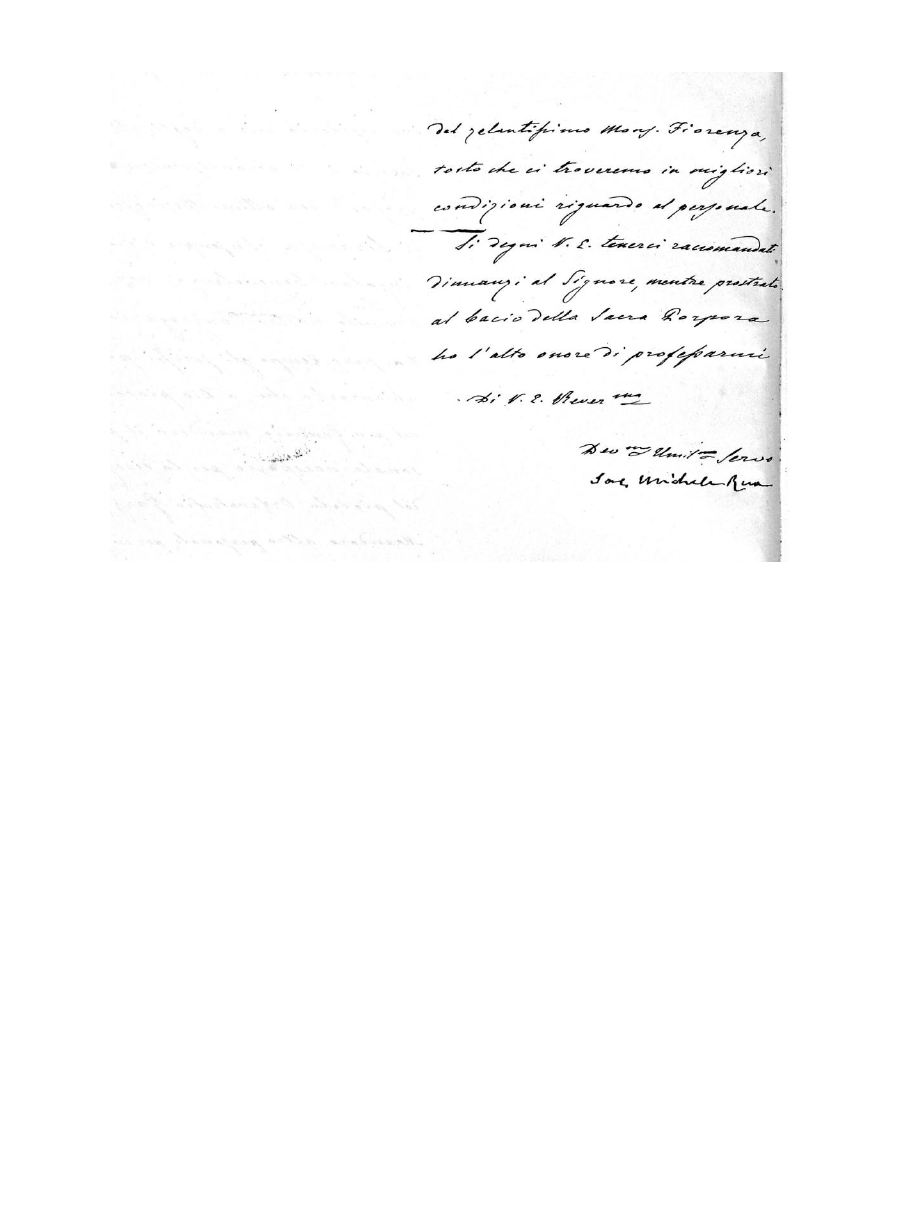 del zelantissimo Mons. Fiorenza,
tosto che ci troveremo in migliori
condizioni riguardo al personale.
Si degni V. E. tenerci raccomandati
dinnanzi al Signore, mentre prostrato
al bacio della Sacra Porpora
ho l'alto onore di professarmi
Di V. E. Rever ma
Dev mo Umil mo Servo
Sac. Michele Rua